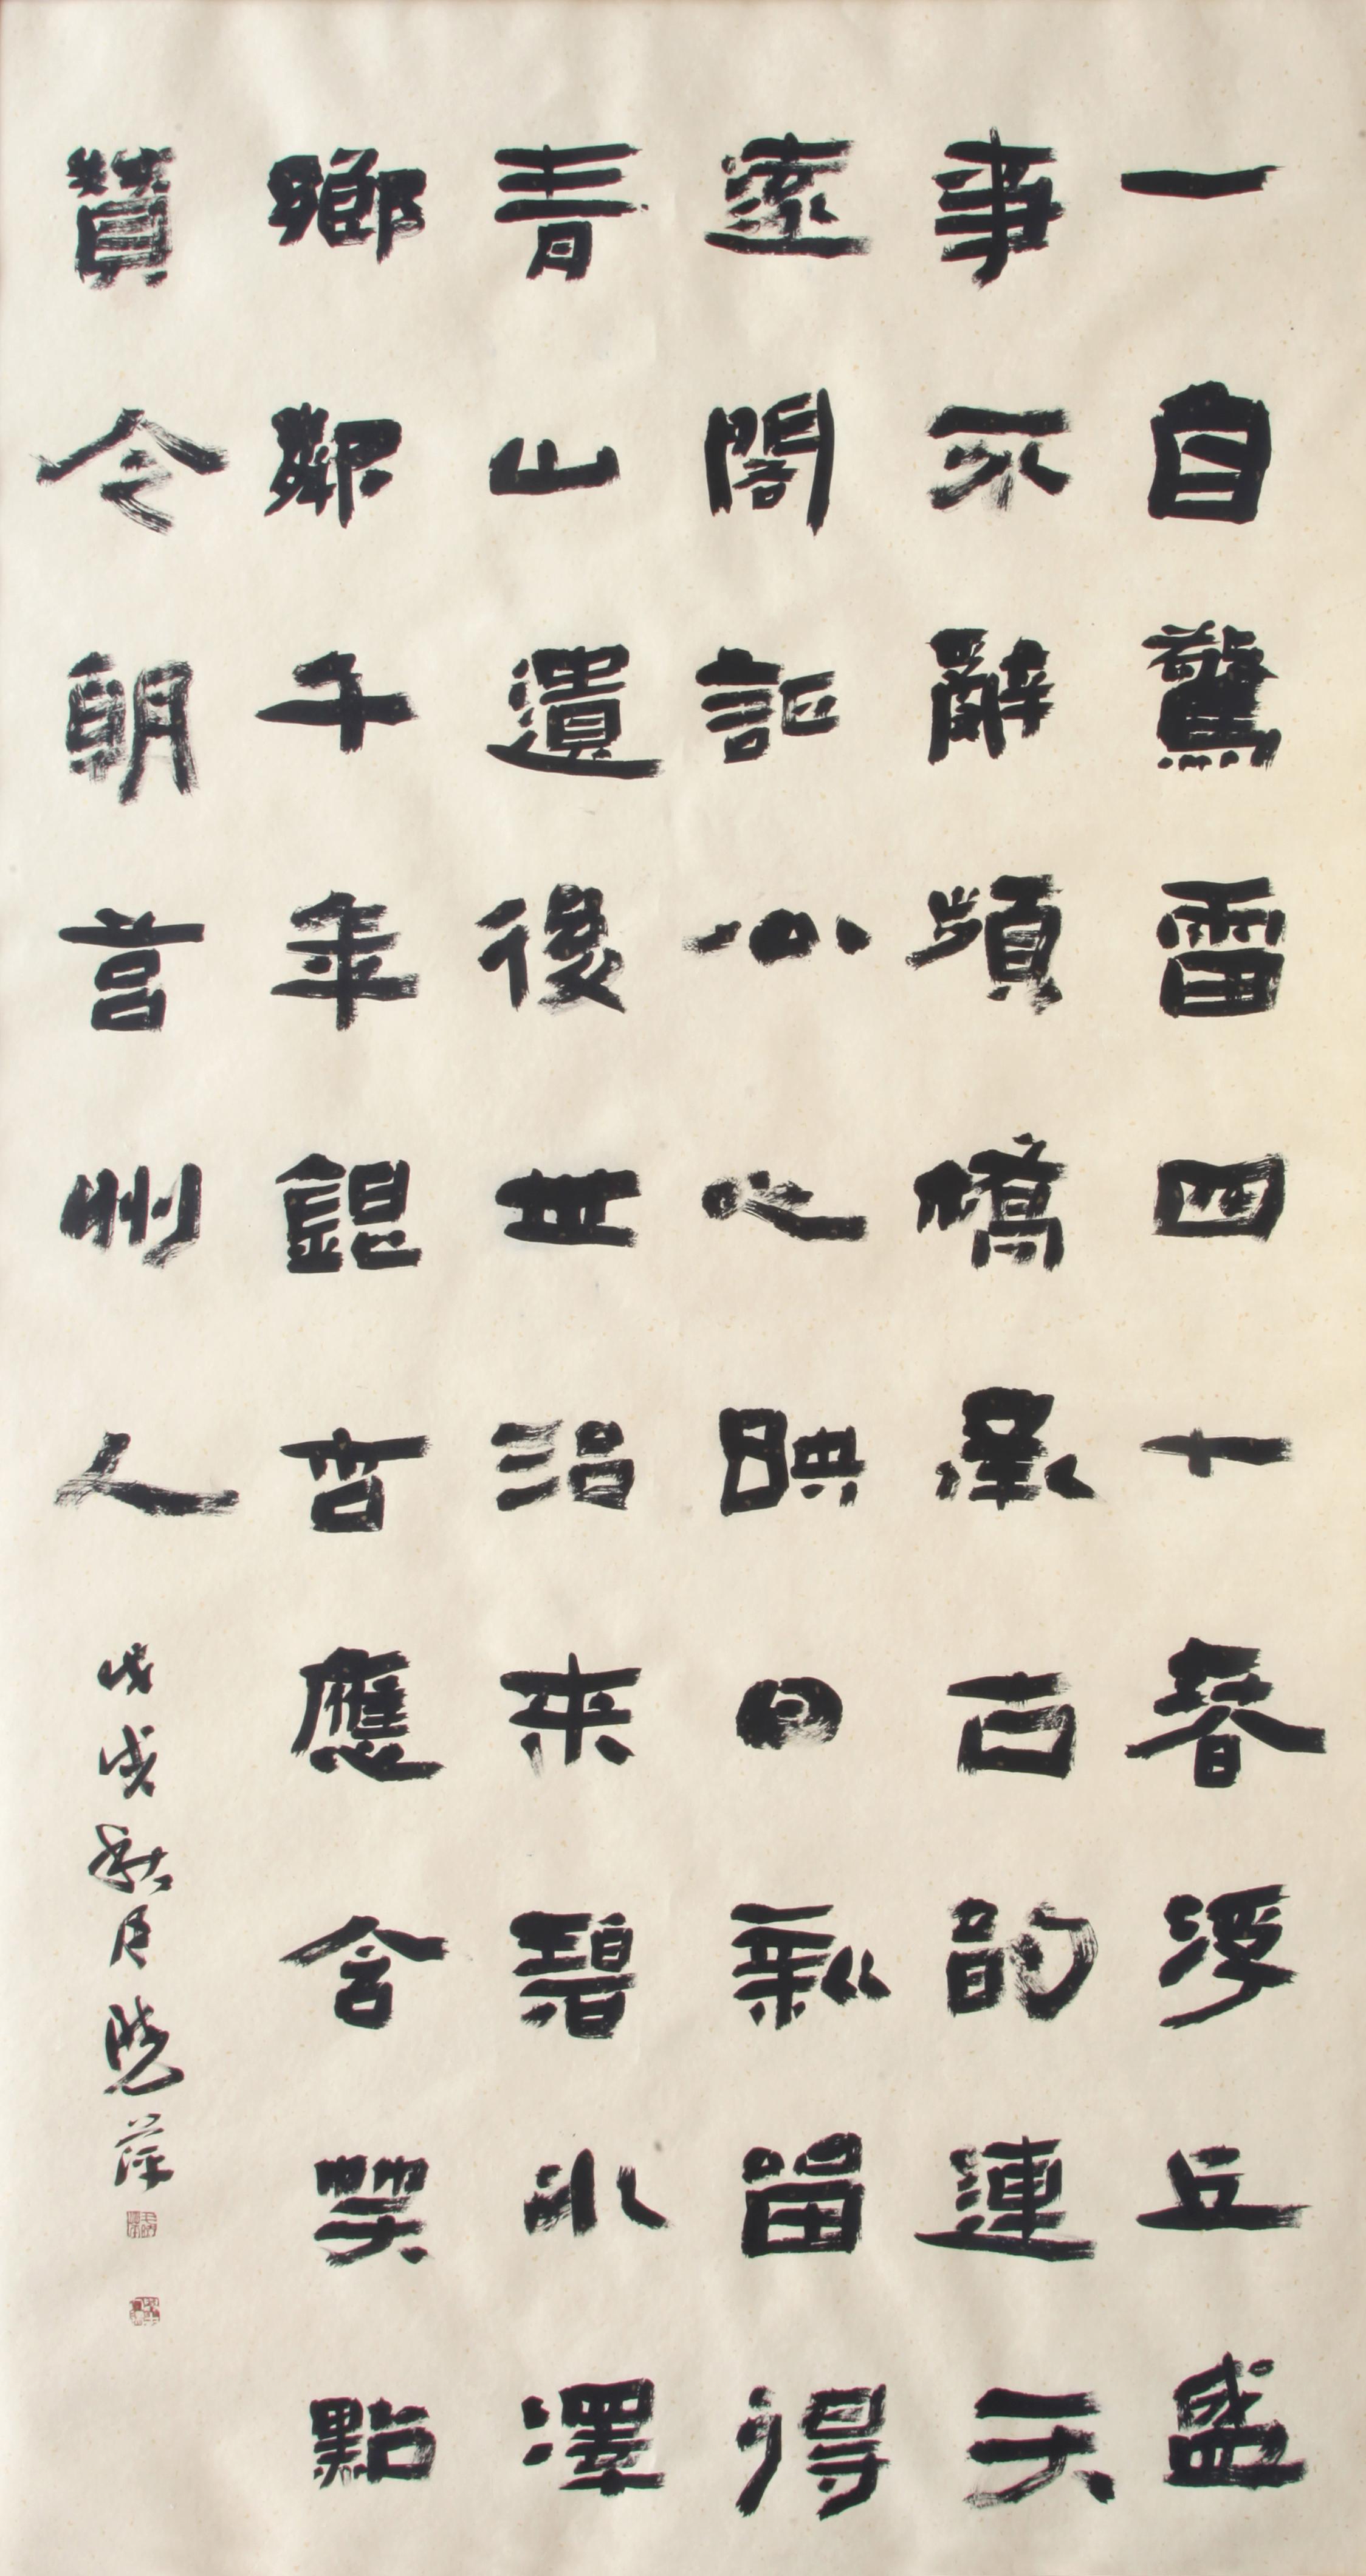 一自驚雷四十春浮丘盛
事不辭頻橋承古韵連天
遠閣詎小心映日新留得
青山遺後世治来碧水澤
鄉鄰千年錕哲應含笑點
贊令朝莒州人
戊戌秋月曉萍